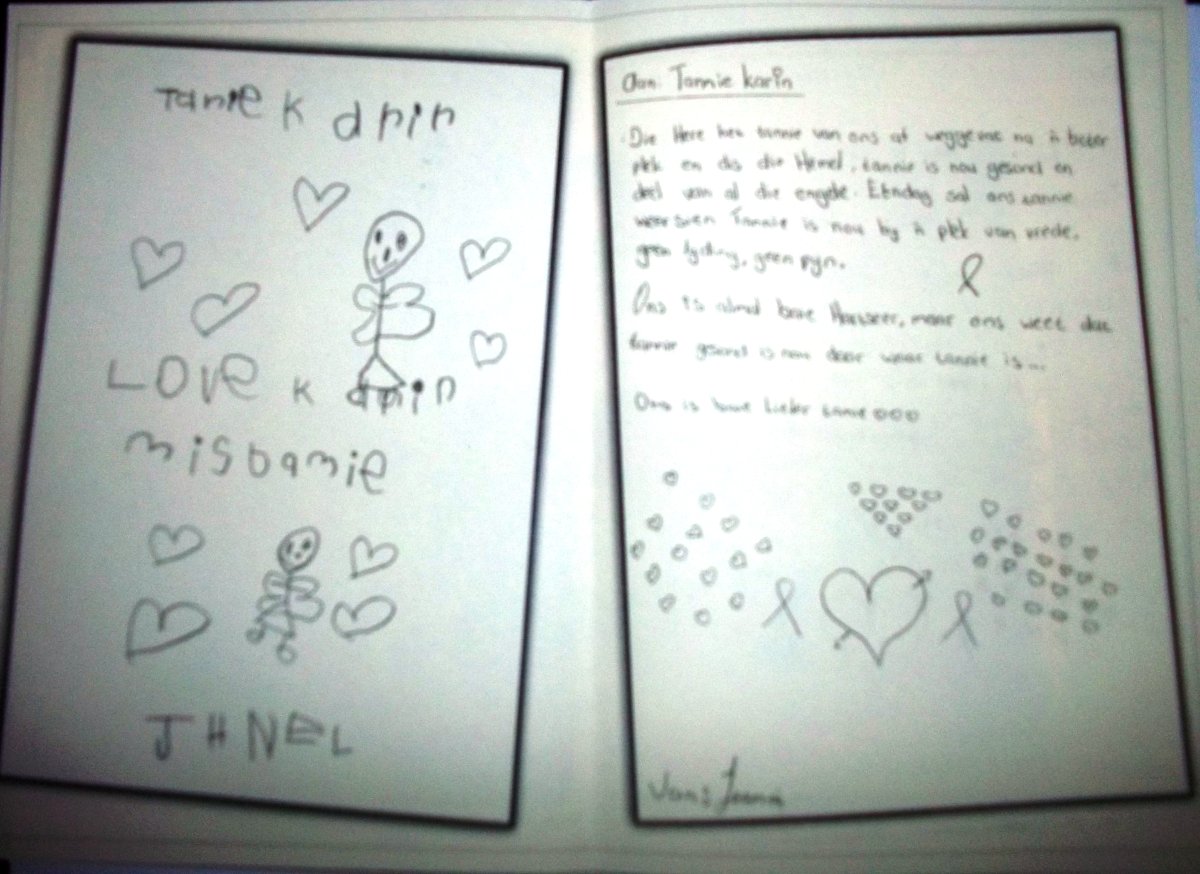 Tanie K arin
LOVE K arin
misbamie
JHNEL
Aan: Tannie Karin
Die Here het tannie van ons af weggevat na 'n beter
plek en dis die Hemel, tannie is nou gesond en
deel van al die engele. Eendag sal ons tannie
weer sien Tannie is nou by 'n plek van vrede,
geen lyding, geen pyn.
Ons is almal baie Hartseer, maar ons weet dat
tannie gesond is daar waar tannie is...
Ons is lief tannie
Van: